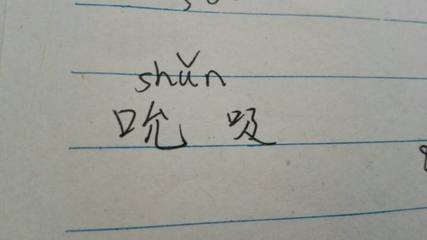 shǔn
吮 吸